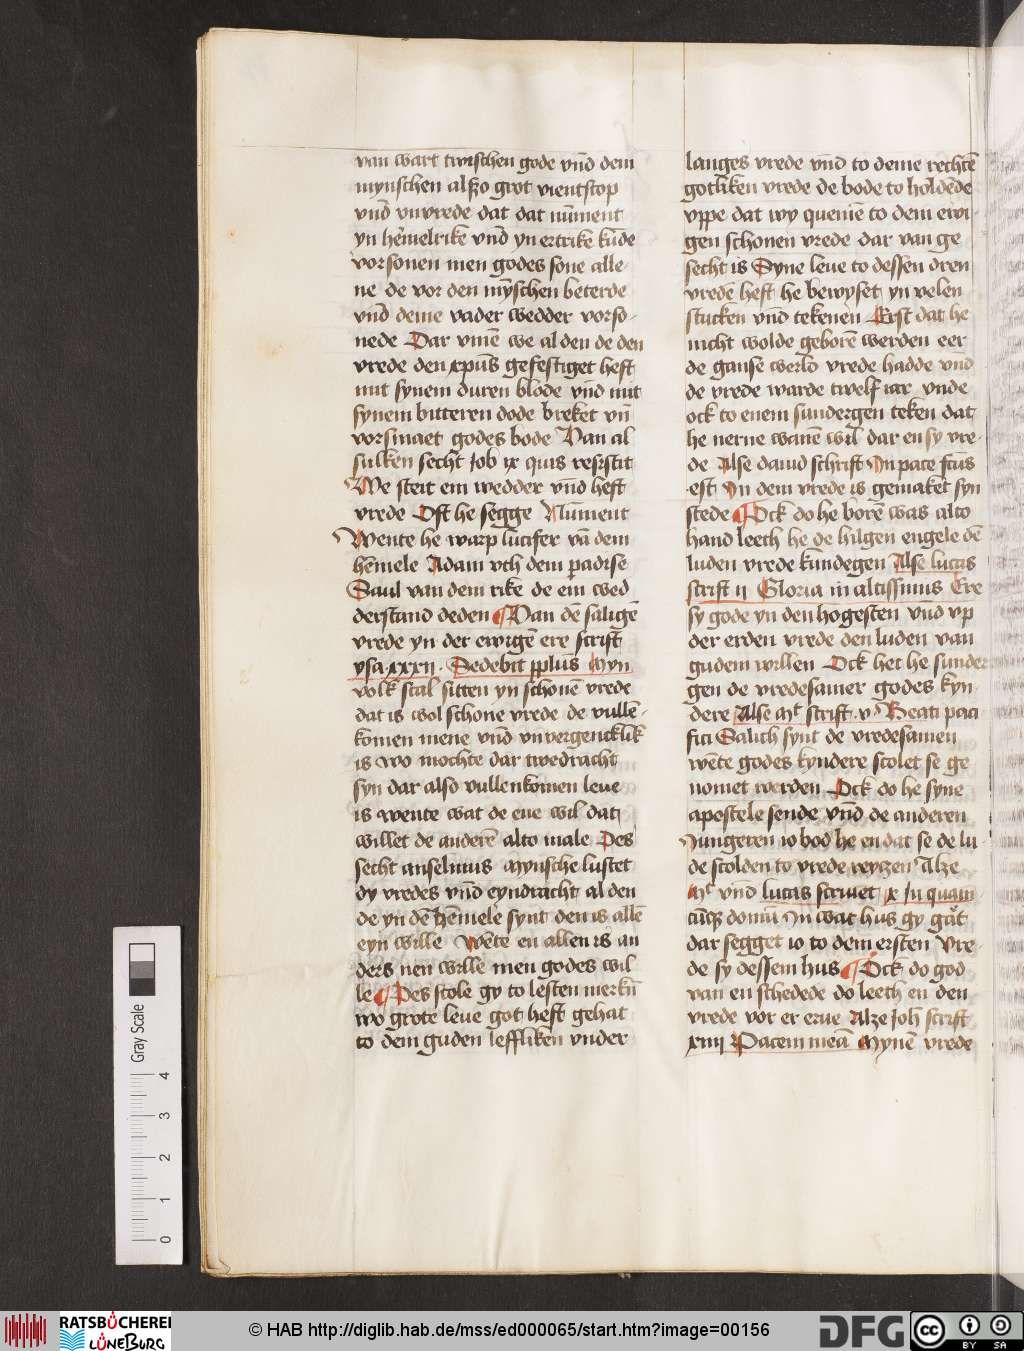 van wart twisschen gode vn̄d dem
mynschen alßo grot vientstop
vn̄d vnvrede dat dat nu̅ment
yn he̅melrike vn̄d yn ertrike ku̅de
vorsonen men godes sone alle-
ne de vor den my̅schen beterde
vn̄d deme vader wedder vorso-
nede Dar vm̅e we al den de den
vrede den xpu̅s gefestiget heft
mit synem duren blode vn̄d mit
synem bitteren dode breket vn̄
vorsmaet godes bode Van al
sulken secht Job ix quis resistit
We steit em wedder vn̄d heft
vrede Oft he segge Nument
Wente he warp lucifer va̅ dem
he̅mele Adam vth dem padise
Saul van dem rike de em wed
derstand deden Van de salige̅
vrede yn der ewige̅ ere scrift
ysa xxxii. Sedebit pplus Myn
volk scal sitten yn schone̅ vrede
dat is wol schone vrede de vulle̅-
komen mene vn̄d vnvergencklik
is wo mochte dar twedracht
syn dar also vullenkomen leue
is wente wat de ene wil dat
willet de andere̅ alto male Des
secht anselmus Mynsche lustet
dy vredes vn̄d eyndracht al den
de yn de̅ he̅mele synt den is alle̅
eyn wille We̅te en allen is an
ders nen wille men godes wil
le Des scole gy to lesten merkn̄
wo grote leue got heft gehat
to dem guden lefliken vnder
langes vrede vn̄d to deme rechte̅
gotliken vrede de bode to holde̅de
vppe dat wy queme̅ to dem ewi-
gen schonen vrede dar van ge
secht is Syne leue to dessen dren
vrede̅ heft he bewyset yn velen
stucken vn̄d tekenen Erst dat he
nicht wolde gebore̅ werden eer
de ganse werld vrede hadde vn̄d
de vrede warde twelf iar vnde
ock to enem sundergen teken dat
he nerne wane̅ wil dar en sy vre-
de Alse dauid schrift In pace fc̅us
est In dem vrede is gemaket syn
stede Ock do he bore̅ was alto
hand leeth he de hilgen engele de̅
luden vrede kundegen Alse lucas
scrift ii Gloria in altissimis Ere
sy gode yn den hogesten vn̄d vp
der erden vrede den luden van
gudem willen Ock het he sunder
gen de vredesamer godes kyn
dere Alse Mt scrift .v. Beati paci
fici Salich synt de vredesamen
we̅te godes kyndere scolet se ge
nomet werden Ock do he syne
apostele sende vn̄d de anderen
Jungeren io bod he en dat se de lu-
de scolden to vrede reytzen Alze
Mt vn̄d lucas scriuet x In quam
cu̅qz domu̅ In wat hus gy gat
dar segget io to dem ersten Vre-
de sy dessem hus Ock do god
van en schedede do leeth en den
vrede vor er erue Alze Joh scrift
xiiij Pacem mea̅ Myne̅ vrede
Gray Scale
0 1 2 3 4
RATSBÜCHEREI
LÜNEBURG
© HAB http://diglib.hab.de/mss/ed000065/start.htm?image=00156
DFG
cc BY SA